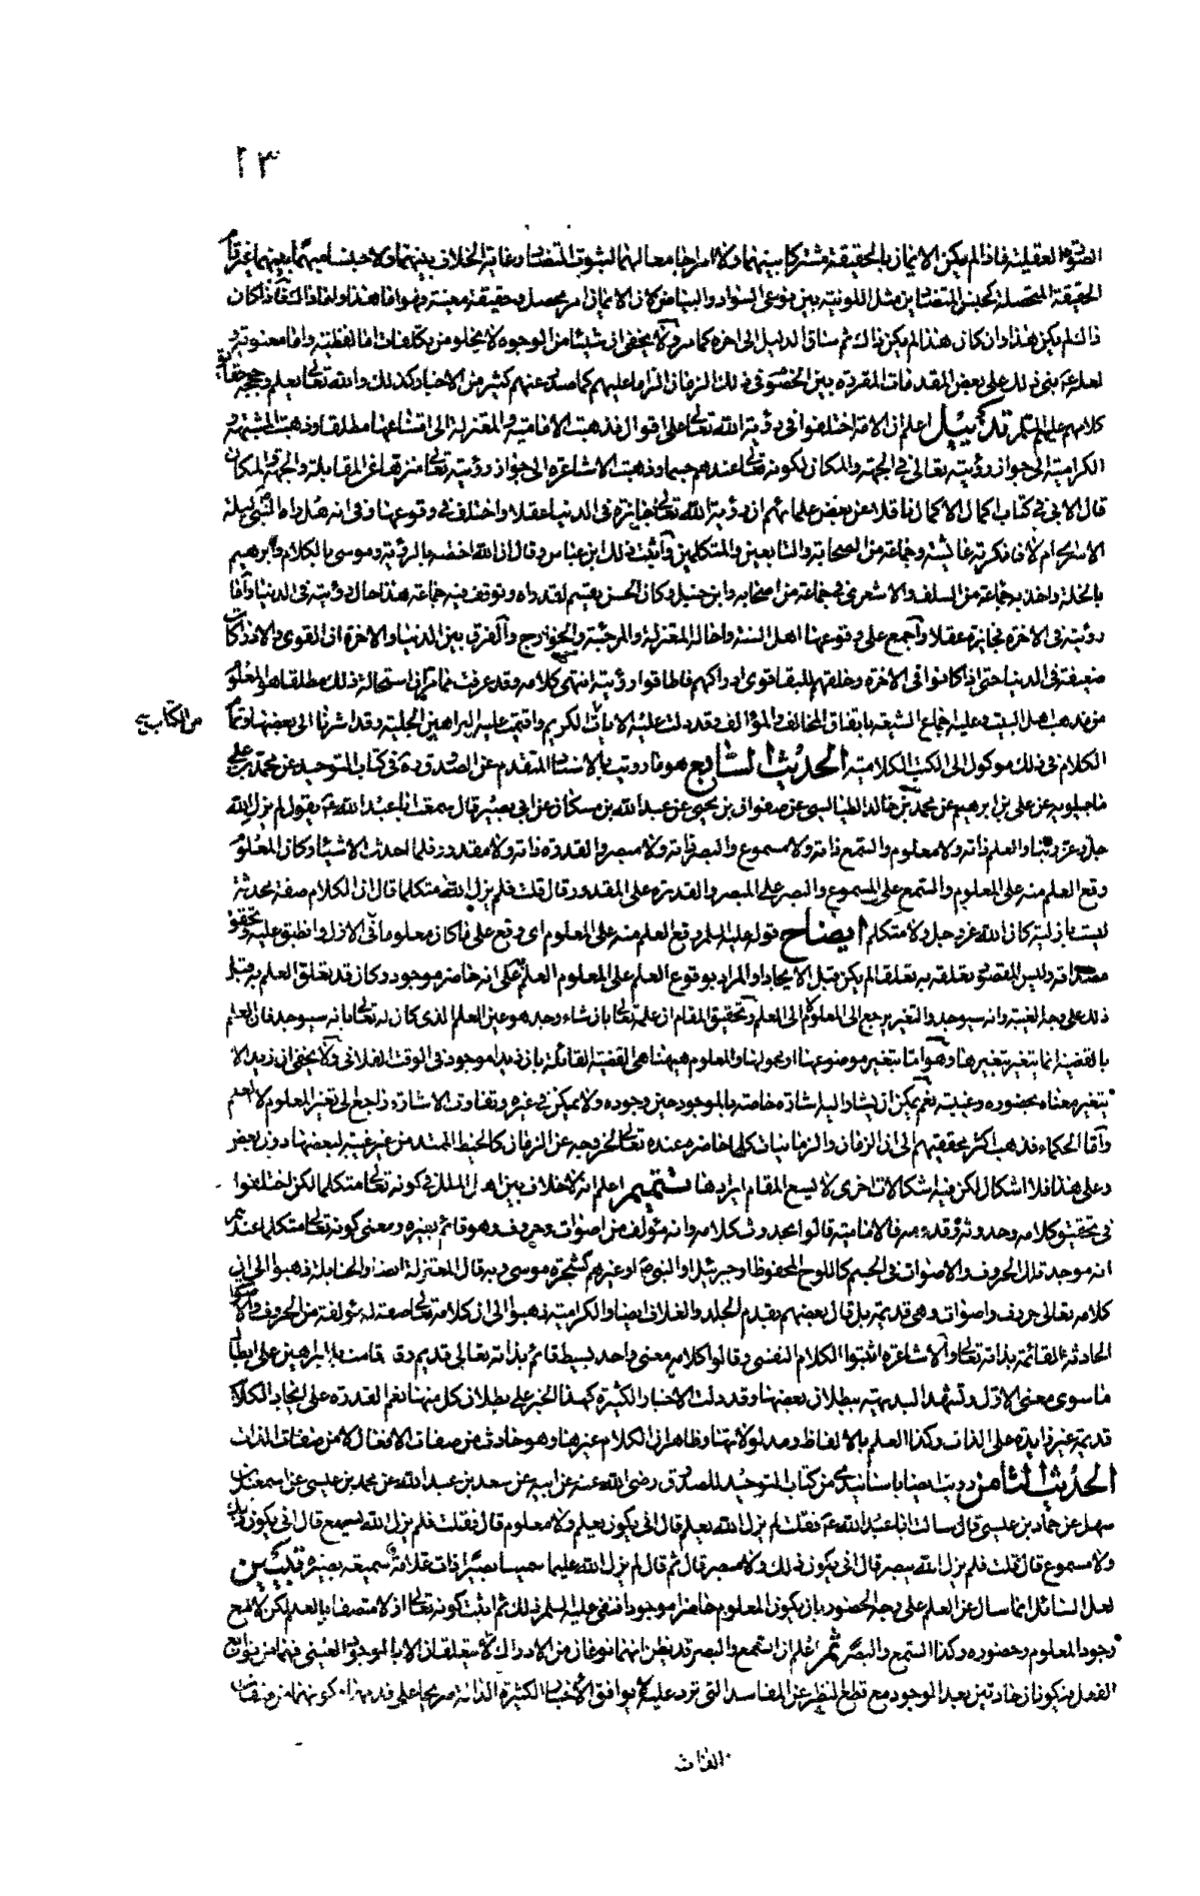 ٢٣
الصور العقلية فاذا لم يكن الايمان بالحقيقة مشتركا بينهما ولا امرا جامعا لهما لثبوت التضاد وغاية الخلاف بينهما ولا جنسا مبهما بينهما غير تام
الحقيقة المتحصلة كجنس المتضادين مثل اللونية بين نوعي السواد والبياض لان الايمان امر محصل وحقيقة معينة فهو اما هذا واما ذاك فاذا كان
ذاك لم يكن هذا وان كان هذا لم يكن ذاك ثم ساق الدليل الى اخره كما مر ولا يخفى ان شيئا من الوجوه لا يخلو من تكلفات اما لفظية واما معنوية
لعله ع بنى ذلك على بعض المقدمات المقررة بين الخصوم في ذلك الزمان الزاما عليهم كما صدر عنهم كثير من الاخبار كذلك والله تعالى يعلم وحججه حقايق
كلامهم عليهم السلم تذييل اعلم ان الامة اختلفوا في رؤية الله تعالى على اقوال فذهبت الامامية والمعتزلة الى امتناعها مطلقا وذهبت المشبهة و
الكرامية الى جواز رؤيته تعالى في الجهة والمكان لكونه تعالى عندهم جسما وذهبت الاشاعرة الى جواز رؤيته تعالى منزها عن المقابلة والجهة والمكان
قال الابي في كتاب كمال الاكمال ناقلا عن بعض علمائهم ان رؤية الله تعالى جائزة في الدنيا عقلا واختلف في وقوعها وفي انه هل راه النبي ليلة
الاسرى ام لا فانكرته عائشة وجماعة من الصحابة والتابعين والمتكلمين واثبت ذلك ابن عباس وقال ان الله اختصه بالرؤية وموسى بالكلام وابرهيم
بالخلة واخذ به جماعة من السلف والاشعري في جماعة من اصحابه وابن حنبل وكان الحسن يقسم لقد راه وتوقف فيه جماعة هذا حال رؤيته في الدنيا واما
رؤيته في الاخرة فجايزة عقلا واجمع على وقوعها اهل السنة واحالها المعتزلة والمرجئة والخوارج والفرق بين الدنيا والاخرة ان القوى والادراكات
ضعيفة في الدنيا حتى اذا كانوا في الاخرة وخلقهم للبقا قوى ادراكهم فاطاقوا رؤيته انتهى كلامه وقد عرفت مما مر ان استحالة ذلك مطلقا هو المعلوم
من مذهب اهل البيت وعليه اجماع الشيعة باتفاق المخالف والمؤالف وقد دلت عليه الايات الكريمة واقيمت عليه البراهين الجلية وقد اشرنا الى بعضها وتمام
من الكتاب
الكلام في ذلك موكول الى الكتب الكلامية الحديث السابع هو ما رويت بالاسناد المتقدم عن الصدوق ره في كتاب التوحيد عن محمد بن علي
ماجيلويه عن علي بن ابرهيم عن محمد بن خالد الطيالسي عن صفوان بن يحيى عن عبد الله بن مسكان عن ابي بصير قال سمعت ابا عبد الله ع يقول لم يزل الله
جل وعز ربنا والعلم ذاته ولا معلوم والسمع ذاته ولا مسموع والبصر ذاته ولا مبصر والقدرة ذاته ولا مقدور فلما احدث الاشياء وكان المعلوم
وقع العلم منه على المعلوم والسمع على المسموع والبصر على المبصر والقدرة على المقدور قال قلت فلم يزل الله متكلما قال ان الكلام صفة محدثة
ليست بازلية كان الله عز وجل ولا متكلم ايضاح قوله عليه السلم وقع العلم منه على المعلوم اي وقع على ما كان معلوما في الازل وانطبق عليه وتحقق
مصداقه وليس المقصود تعلقه به تعلقا لم يكن قبل الايجاد او المراد بوقوع العلم على المعلوم العلم على انه حاضر موجود وكان قد تعلق العلم به قبل
ذلك على وجه الغيبة وانه سيوجد والتغير يرجع الى المعلوم لا الى العلم وتحقيق المقام ان علمه تعالى بان شاء وجد هو عين العلم الذي كان له تعالى بانه سيوجد فان العلم
بالقضية انما يتغير بتغيرها وهو اما بتغير موضوعها او محمولها والمعلوم هيهنا هي القضية القائلة بان زيدا موجود في الوقت الفلاني ولا يخفى ان زيدا لا
يتغير معناه بحضوره وغيبته نعم يمكن ان يشار اليه اشارة خاصة بالموجود حين وجوده ولا يمكن في غيره وتفاوت الاشارة راجع الى تغير المعلوم لا العلم
واما الحكماء فذهب اكثر محققيهم الى ان الزمان والزمانيات كلها حاضرة عنده تعالى لخروجه عن الزمان كالخيط الممتد من غير غيبة لبعضها دون بعض
وعلى هذا فلا اشكال لكن فيه اشكالات اخرى لا يسع المقام ايرادها تتميم اعلم انه لا خلاف بين اهل الملل في كونه تعالى متكلما لكن اختلفوا
في تحقيق كلامه وحدوثه وقدمه فالامامية قالوا بحدوث كلامه وانه مؤلف من اصوات وحروف وهو قائم بغيره ومعنى كونه تعالى متكلما عندهم
انه موجد تلك الحروف والاصوات في الجسم كاللوح المحفوظ او جبرئيل او النبي ص او غيرهم كشجرة موسى وبه قال المعتزلة ايضا والحنابلة ذهبوا الى ان
كلامه تعالى حروف واصوات وهي قديمة بل قال بعضهم بقدم الجلد والغلاف ايضا والكرامية ذهبوا الى ان كلامه تعالى صفة له مؤلفة من الحروف والاصوات
الحادثة القائمة بذاته تعالى والاشاعرة اثبتوا الكلام النفسي وقالوا كلامه معنى واحد بسيط قائم بذاته تعالى قديم وقد قامت البراهين على ابطال
ما سوى معنى الاول وتشهد البديهة ببطلان بعضها وقد دلت الاخبار الكثيرة كهذا الخبر على بطلان كل منها نعم القدرة على ايجاد الكلام
قديمة غير زايدة على الذات وكذا العلم بالالفاظ ومدلولاتها وظاهر ان الكلام غيرها وهو حادث من صفات الافعال لا من صفات الذات
الحديث الثامن رويت ايضا باسانيدي من كتاب التوحيد للصدوق رضي الله عنه عن ابيه عن سعد بن عبد الله عن محمد بن عيسى عن اسمعيل بن
سهل عن حماد بن عيسى قال سالت ابا عبد الله ع فقلت لم يزل الله يعلم قال انى يكون يعلم ولا معلوم قال قلت فلم يزل الله يسمع قال انى يكون ذلك
ولا مسموع قال قلت فلم يزل الله يبصر قال انى يكون ذلك ولا مبصر قال ثم قال لم يزل الله عليما سميعا بصيرا ذات علامة سميعة بصيرة تبيين
لعل السائل انما سال عن العلم على وجه الحضور بان يكون المعلوم حاضرا موجودا فنفى عليه السلم ذلك ثم اثبت كونه تعالى ازلا متصفا بالعلم لكن لا مع
وجود المعلوم وحضوره وكذا السمع والبصر ثم اعلم ان السمع والبصر قد يظن انهما نوعان من الادراك لا يتعلقان الا بالموجود العيني فهما من توابع
الفعل فيكونان حادثين بعد الوجود مع قطع النظر عن المفاسد التي ترد عليه لا يوافق الاخبار الكثيرة الدالة صريحا على قدمهما وكونهما من صفات
الذات